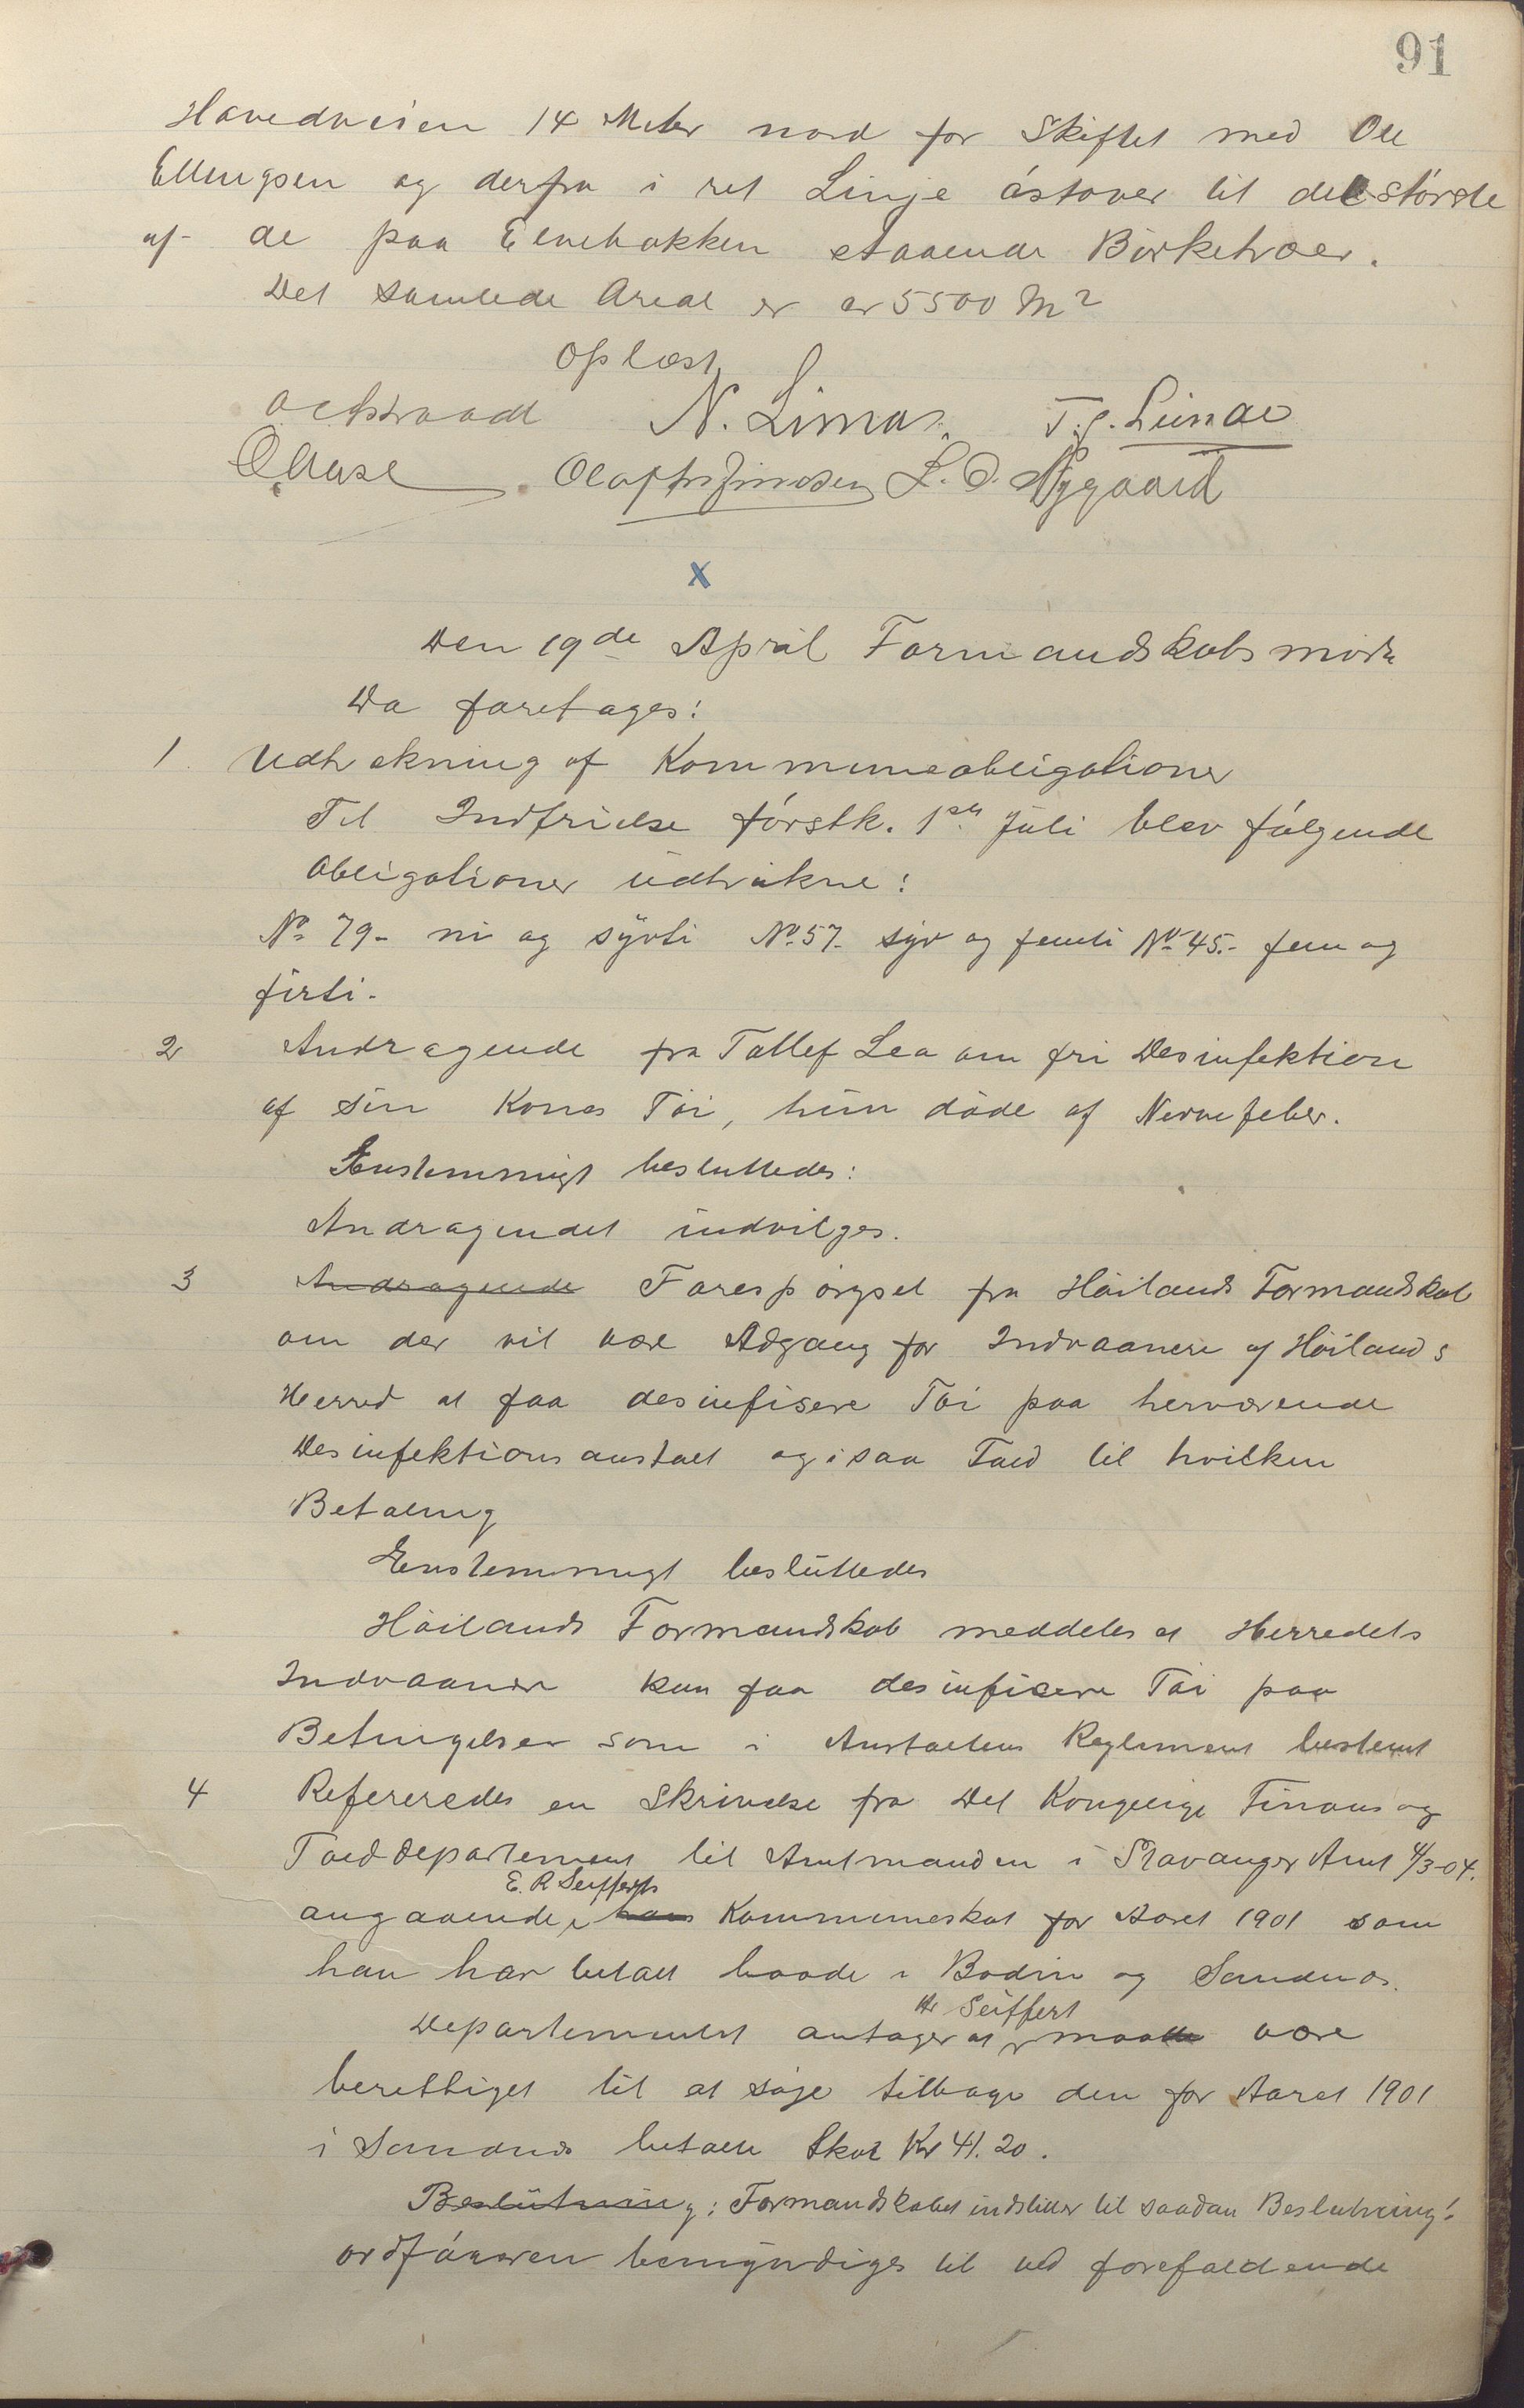 91
Hovedveien 14 Meter nord for Skiftet med Ole
Ellingsen og derfra i ret Linje óstover til det störste
af de paa Elvebakken staaende Birketrær.
Det samlede Areal er ca 5500 M²
Oplæst
Actstraadt N. Lima. T. J. Lunde
O Aase L. O. Nygaard
X
Den 19de April Formandskabsmöde
Da foretages:
1. Udtrekning af Kommuneobligationer
Til Indfrielse förstk. 1ste Juli blev fölgende
Obligationer udtrukne:
No 79- ni og sytti No 57- syv og femti No 45.- fem og
förti.
2 Andragende fra Tallef Lea om fri Desinfektion
af sin Kones Töi, hun döde af Nervefeber.
Enstemmigt besluttedes:
Andragendet indvilges.
3 Andragende Forespörgsel fra Höilands Formandskab
om der vil være Adgang for Indvaanere af Höilands
Herred at faa desinfisere Töi paa herværende
Desinfektionsanstalt og i saa Fald til hvilken
Betaling
Enstemmigt besluttedes
Höilands Formandskab meddeles at Herredets
Indvaanere kan faa desinficere Töi paa
Betingelser som i Anstaltens Reglement bestemt
4 Refereredes en Skrivelse fra Det Kongelige Finans og
Tolddepartement til Amtmanden i Stavanger Amt 4/3-04.
E. R Seifferts
angaaende hans Kommuneskat for Aaret 1901 som
han har betalt baade i Bodin og Sandnæs.
Hr Seiffert
Departementet antager at maatte være
berettiget til at söge tilbage den for Aaret 1901
i Sandnæs betalte Skat Kr 41.20.
Beslutning: Formandskabet indstiller til saadan Beslutning:
Ordföreren bemyndiges til ved forefaldende